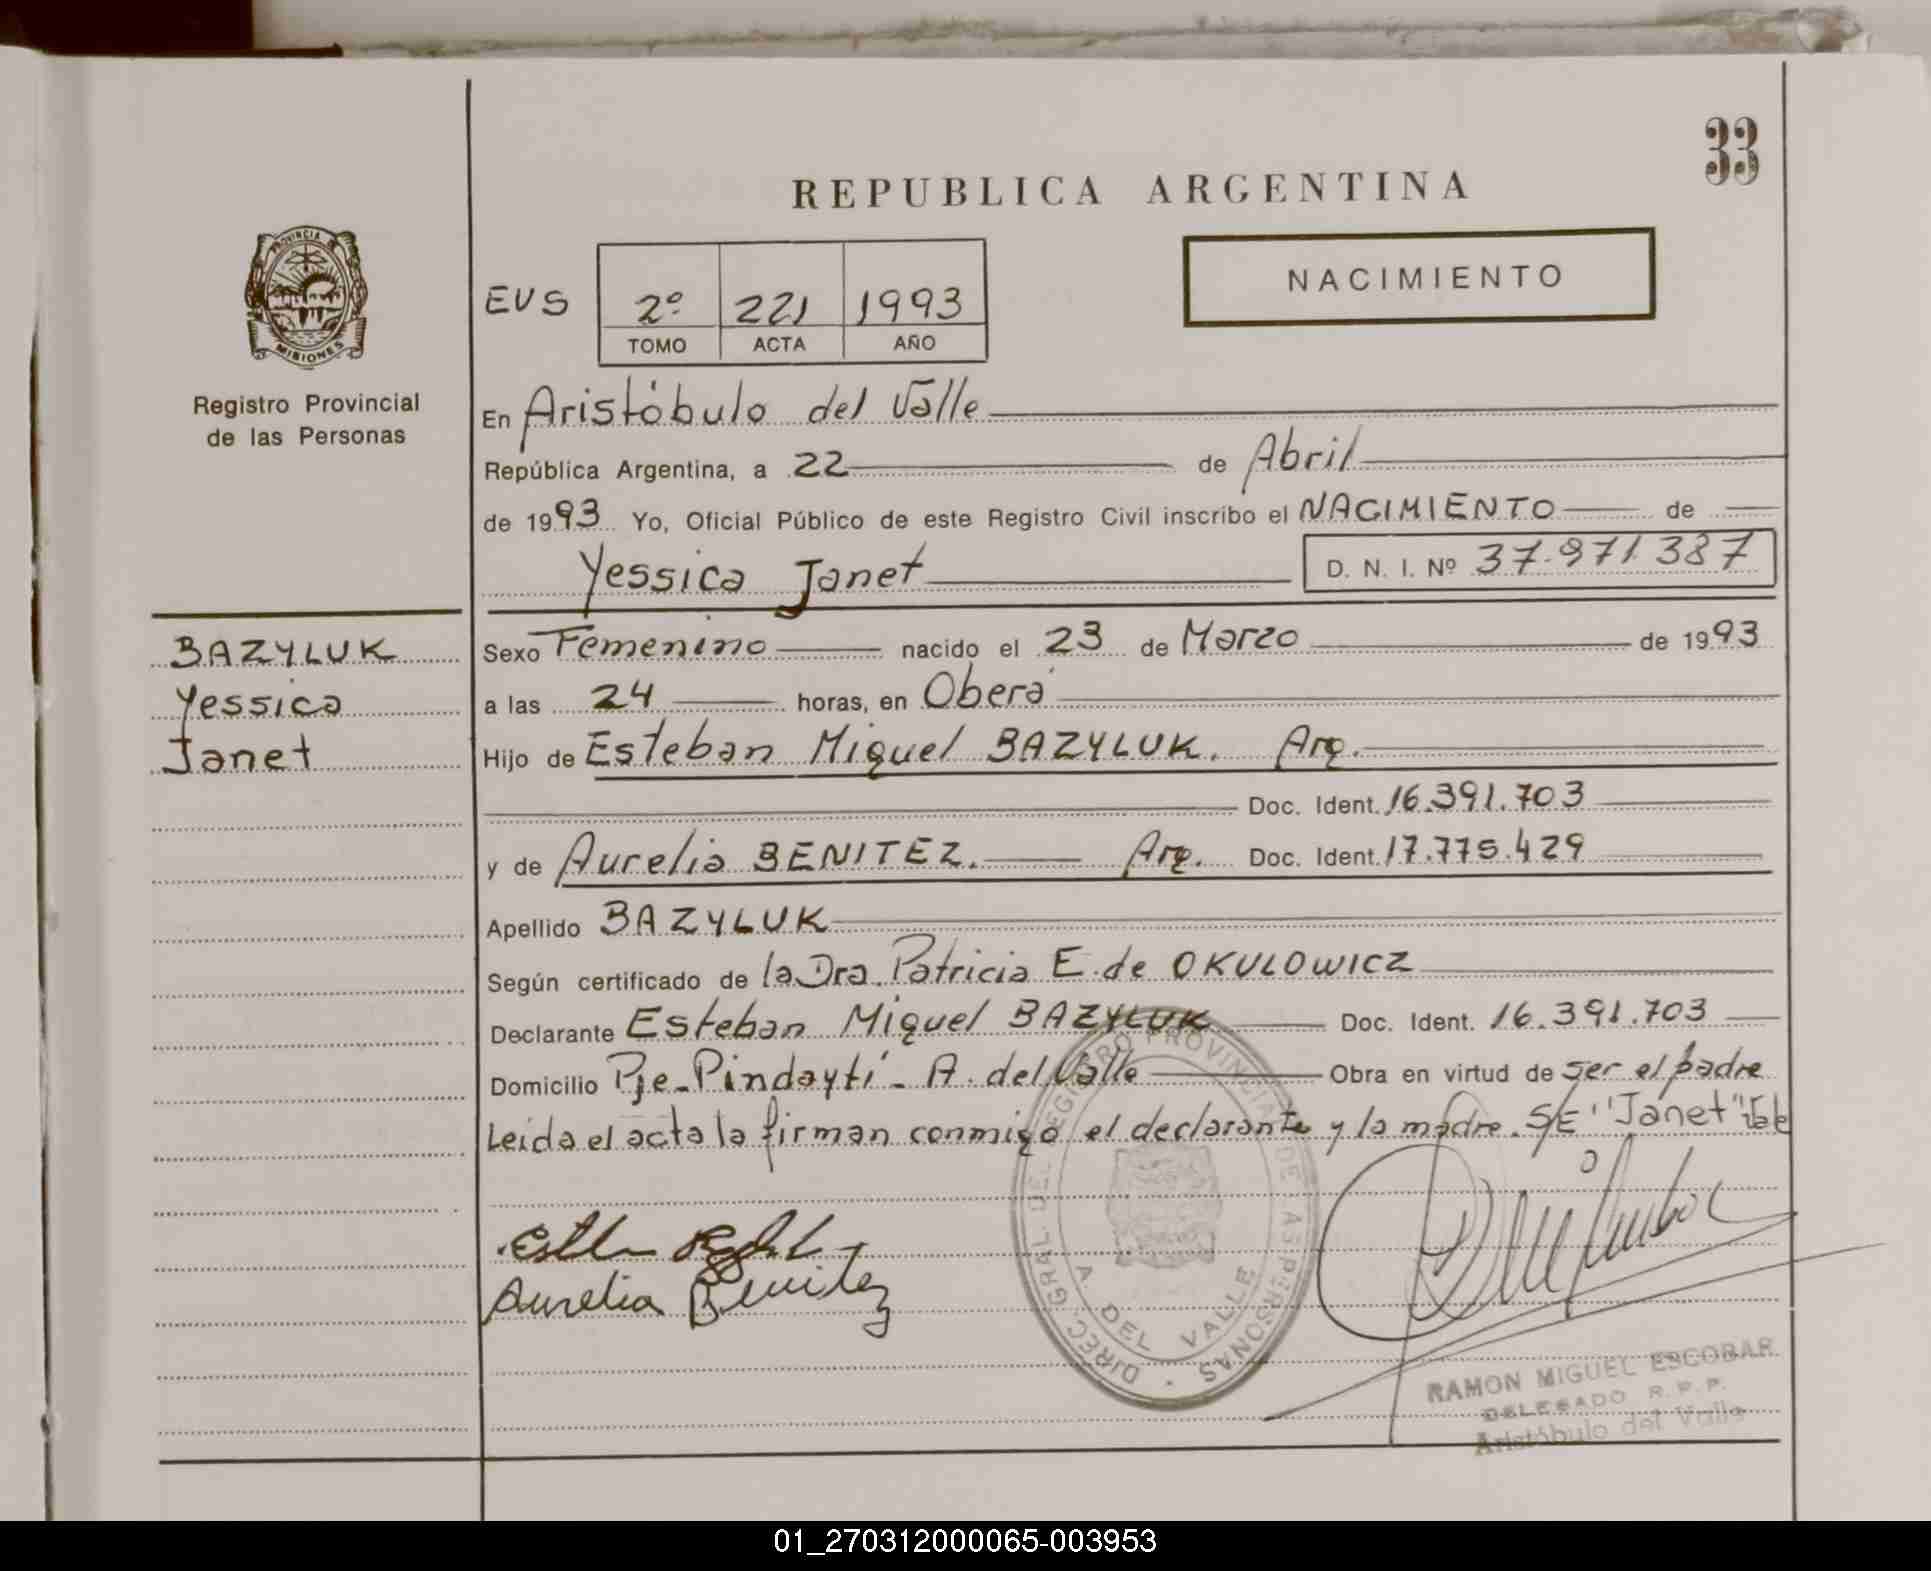 33
REPUBLICA ARGENTINA
NACIMIENTO
PROVINCIA DE
MISIONES
Registro Provincial
de las Personas
EVS 2º 221 1993
TOMO ACTA AÑO
En Aristóbulo del Valle
República Argentina, a 22 de Abril
de 1993 Yo, Oficial Público de este Registro Civil inscribo el NACIMIENTO de
Yessica Janet D. N. I. Nº 37.971.387
BAZYLUK
Yessica
Janet
Sexo Femenino nacido el 23 de Marzo de 1993
a las 24 horas, en Oberá
Hijo de Esteban Miguel BAZYLUK. Arg.
Doc. Ident. 16.391.703
y de Aurelia BENITEZ. Arg. Doc. Ident. 17.775.429
Apellido BAZYLUK
Según certificado de la Dra. Patricia E. de OKULOWICZ
Declarante Esteban Miguel BAZYLUK Doc. Ident. 16.391.703
Domicilio Pje. Pindaytí - A. del Valle Obra en virtud de ser el padre
Leida el acta la firman conmigo el declarante y la madre. S/E "Janet" Vale
Aurelia Benitez
DIREC. GRAL. DEL REGISTRO PROVINCIAL DE LAS PERSONAS
A. DEL VALLE
RAMON MIGUEL ESCOBAR
DELEGADO R. P. P.
Aristóbulo del Valle
01_270312000065-003953